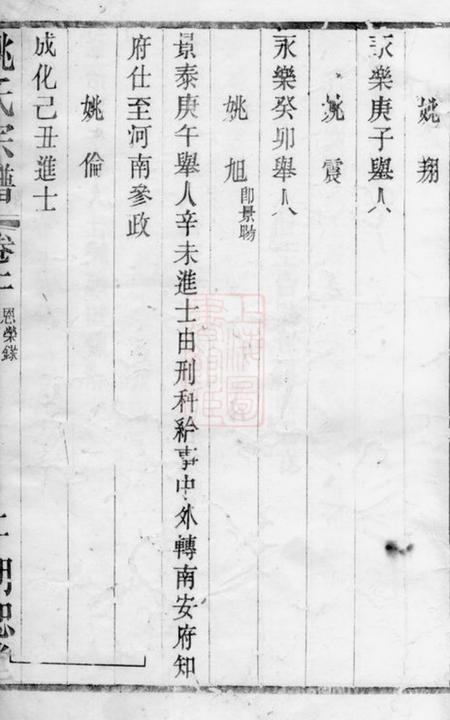 姚翔
永樂庚子舉人
姚震
永樂癸卯舉人
姚旭即景暘
景泰庚午舉人辛未進士由刑科給事中外轉南安府知
府仕至河南參政
姚倫
成化己丑進士
姚氏宗譜 卷二 恩榮錄
上海圖